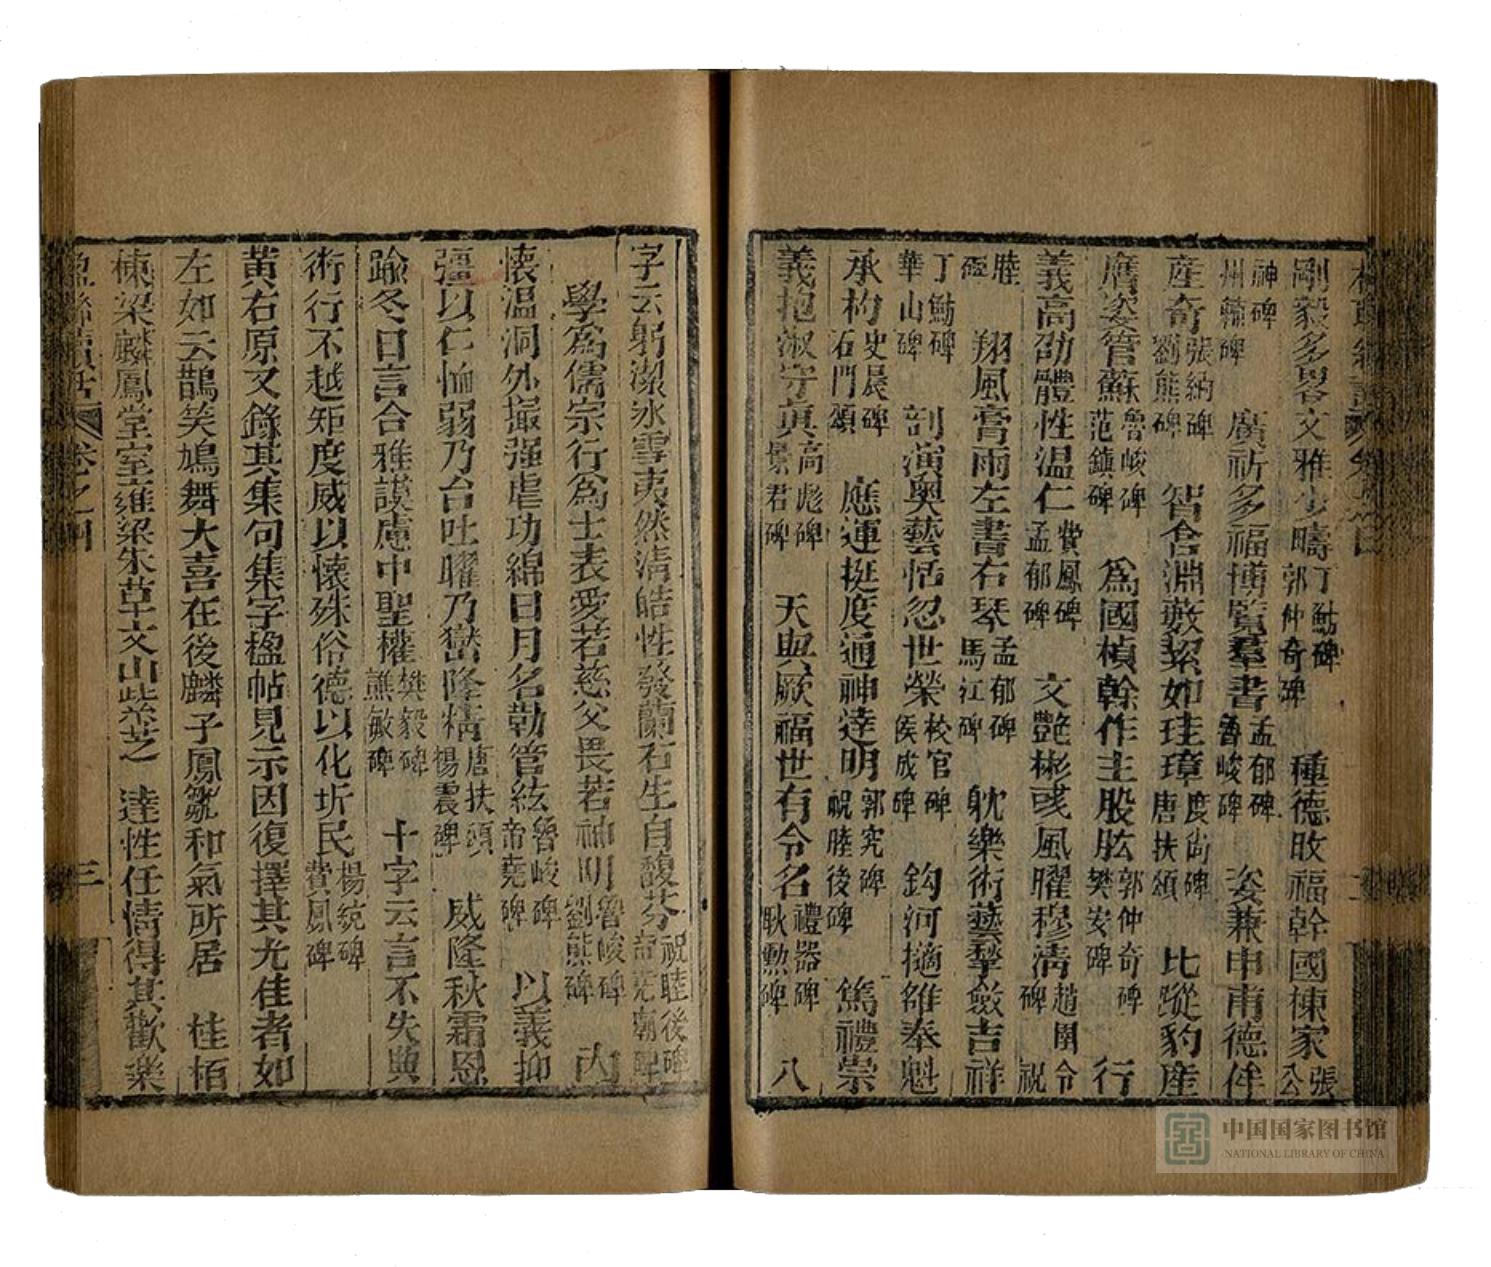 剛毅多畧文雅少疇丁魴碑郭仲奇碑 種德收福幹國棟家張公
神碑州輔碑 廣祈多福博覽羣書孟郁碑魯峻碑 姿兼申甫德侔
產奇張納碑劉熊碑 智含淵藪絜如珪璋度尚碑唐扶頌 比蹤豹產
膺姿管蘇魯峻碑范鎮碑 為國楨幹作主股肱郭仲奇碑樊安碑 行
義高劭體性温仁費鳳碑孟郁碑 文艷彬彧風曜穆清趙圉令碑 祝
睦碑 翔風膏雨左書右琴孟郁碑馬江碑 躭樂術藝擥斂吉祥
丁魴碑華山碑 剖演奧藝恬忽世榮校官碑侯成碑 鈎河摘雒奉魁
承杓史晨碑石門頌 應運挺度通神達明郭究碑祝睦後碑 篤禮崇
義抱淑守真高彪碑景君碑 天與厥福世有令名禮器碑耿勲碑 八
字云躬潔冰雪夷然清皓性發蘭石生自馥芬祝睦後碑帝堯廟碑
學為儒宗行為士表愛若慈父畏若神明魯峻碑劉熊碑 內
懷温洞外撮强虐功綿日月名勒管絃魯峻碑帝堯碑 以義抑
彊以仁恤弱乃台吐曜乃嶽降精唐扶頌楊震碑 威隆秋霜恩
踰冬日言合雅謨慮中聖權樊毅碑譙敏碑 十字云言不失典
術行不越矩度威以懷殊俗德以化圻民楊統碑費鳳碑
黃右原又錄其集句集字楹帖見示因復擇其尤佳者如
左如云鵲笑鳩舞大喜在後麟子鳳雛和氣所居 桂栢
棟梁麟鳳堂室雍梁朱草文山紫芝 達性任情得其歡樂
楹聯續話 卷之四 三